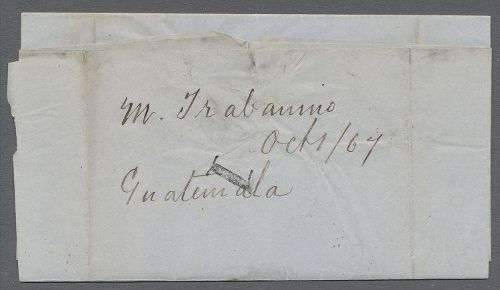 M. Trabanino
Oct 1/67
Guatemala